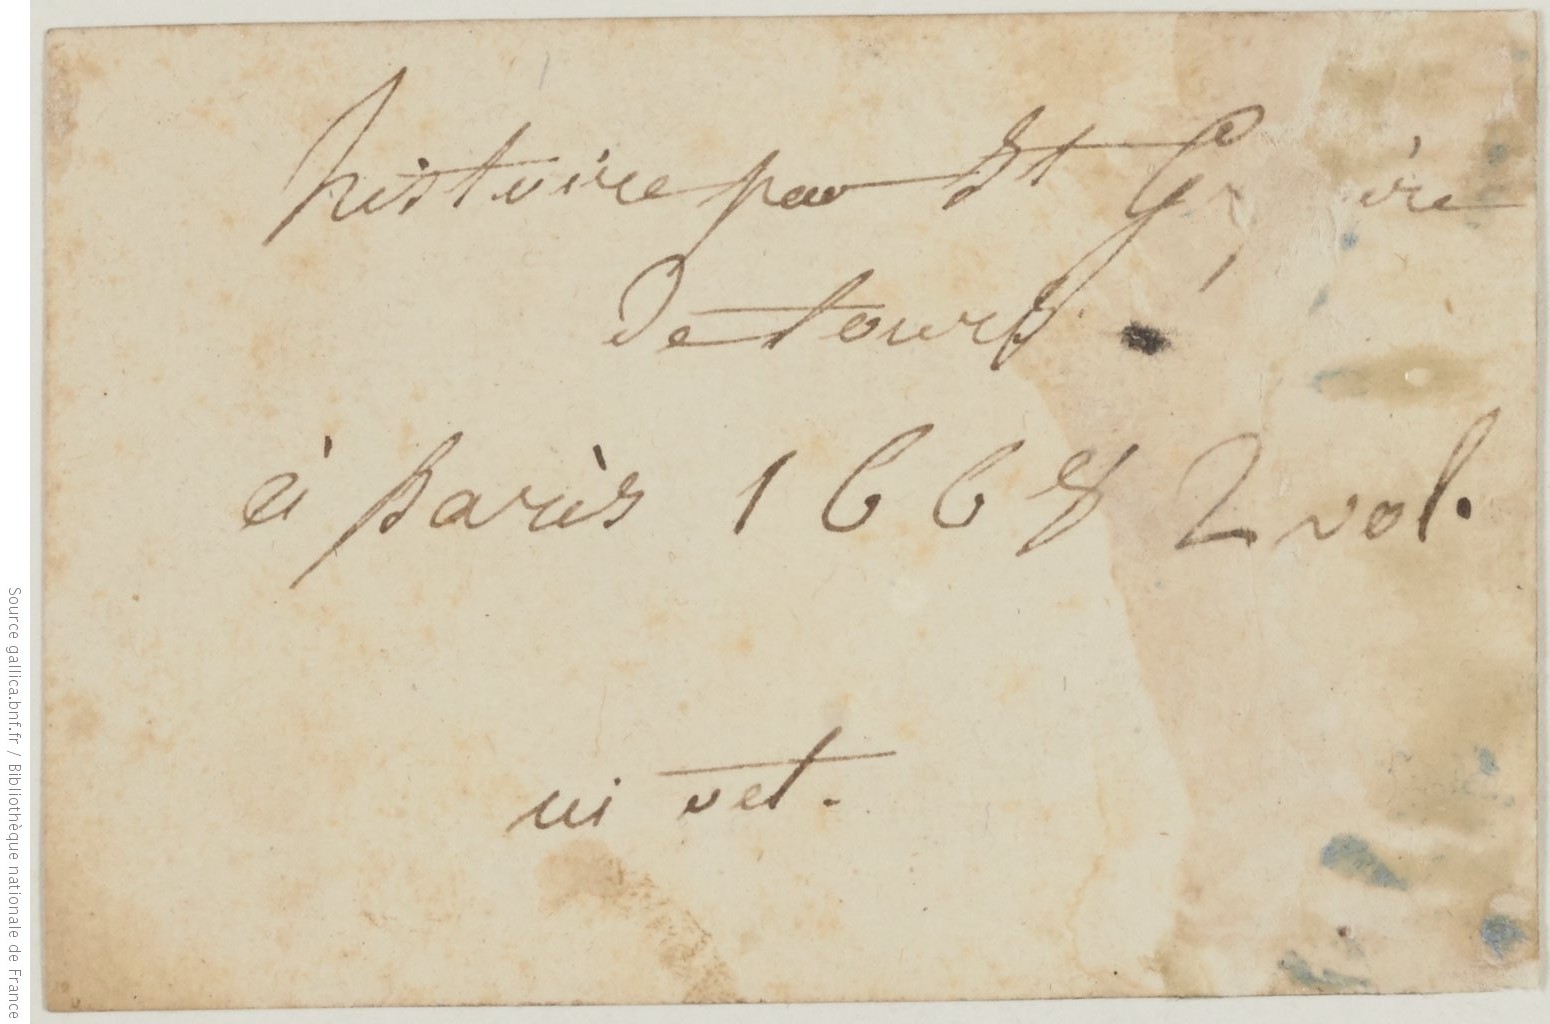 histoire par St G ire
de tours
à paris 1668 2 vol.
in vet.
Source gallica.bnf.fr / Bibliothèque nationale de France